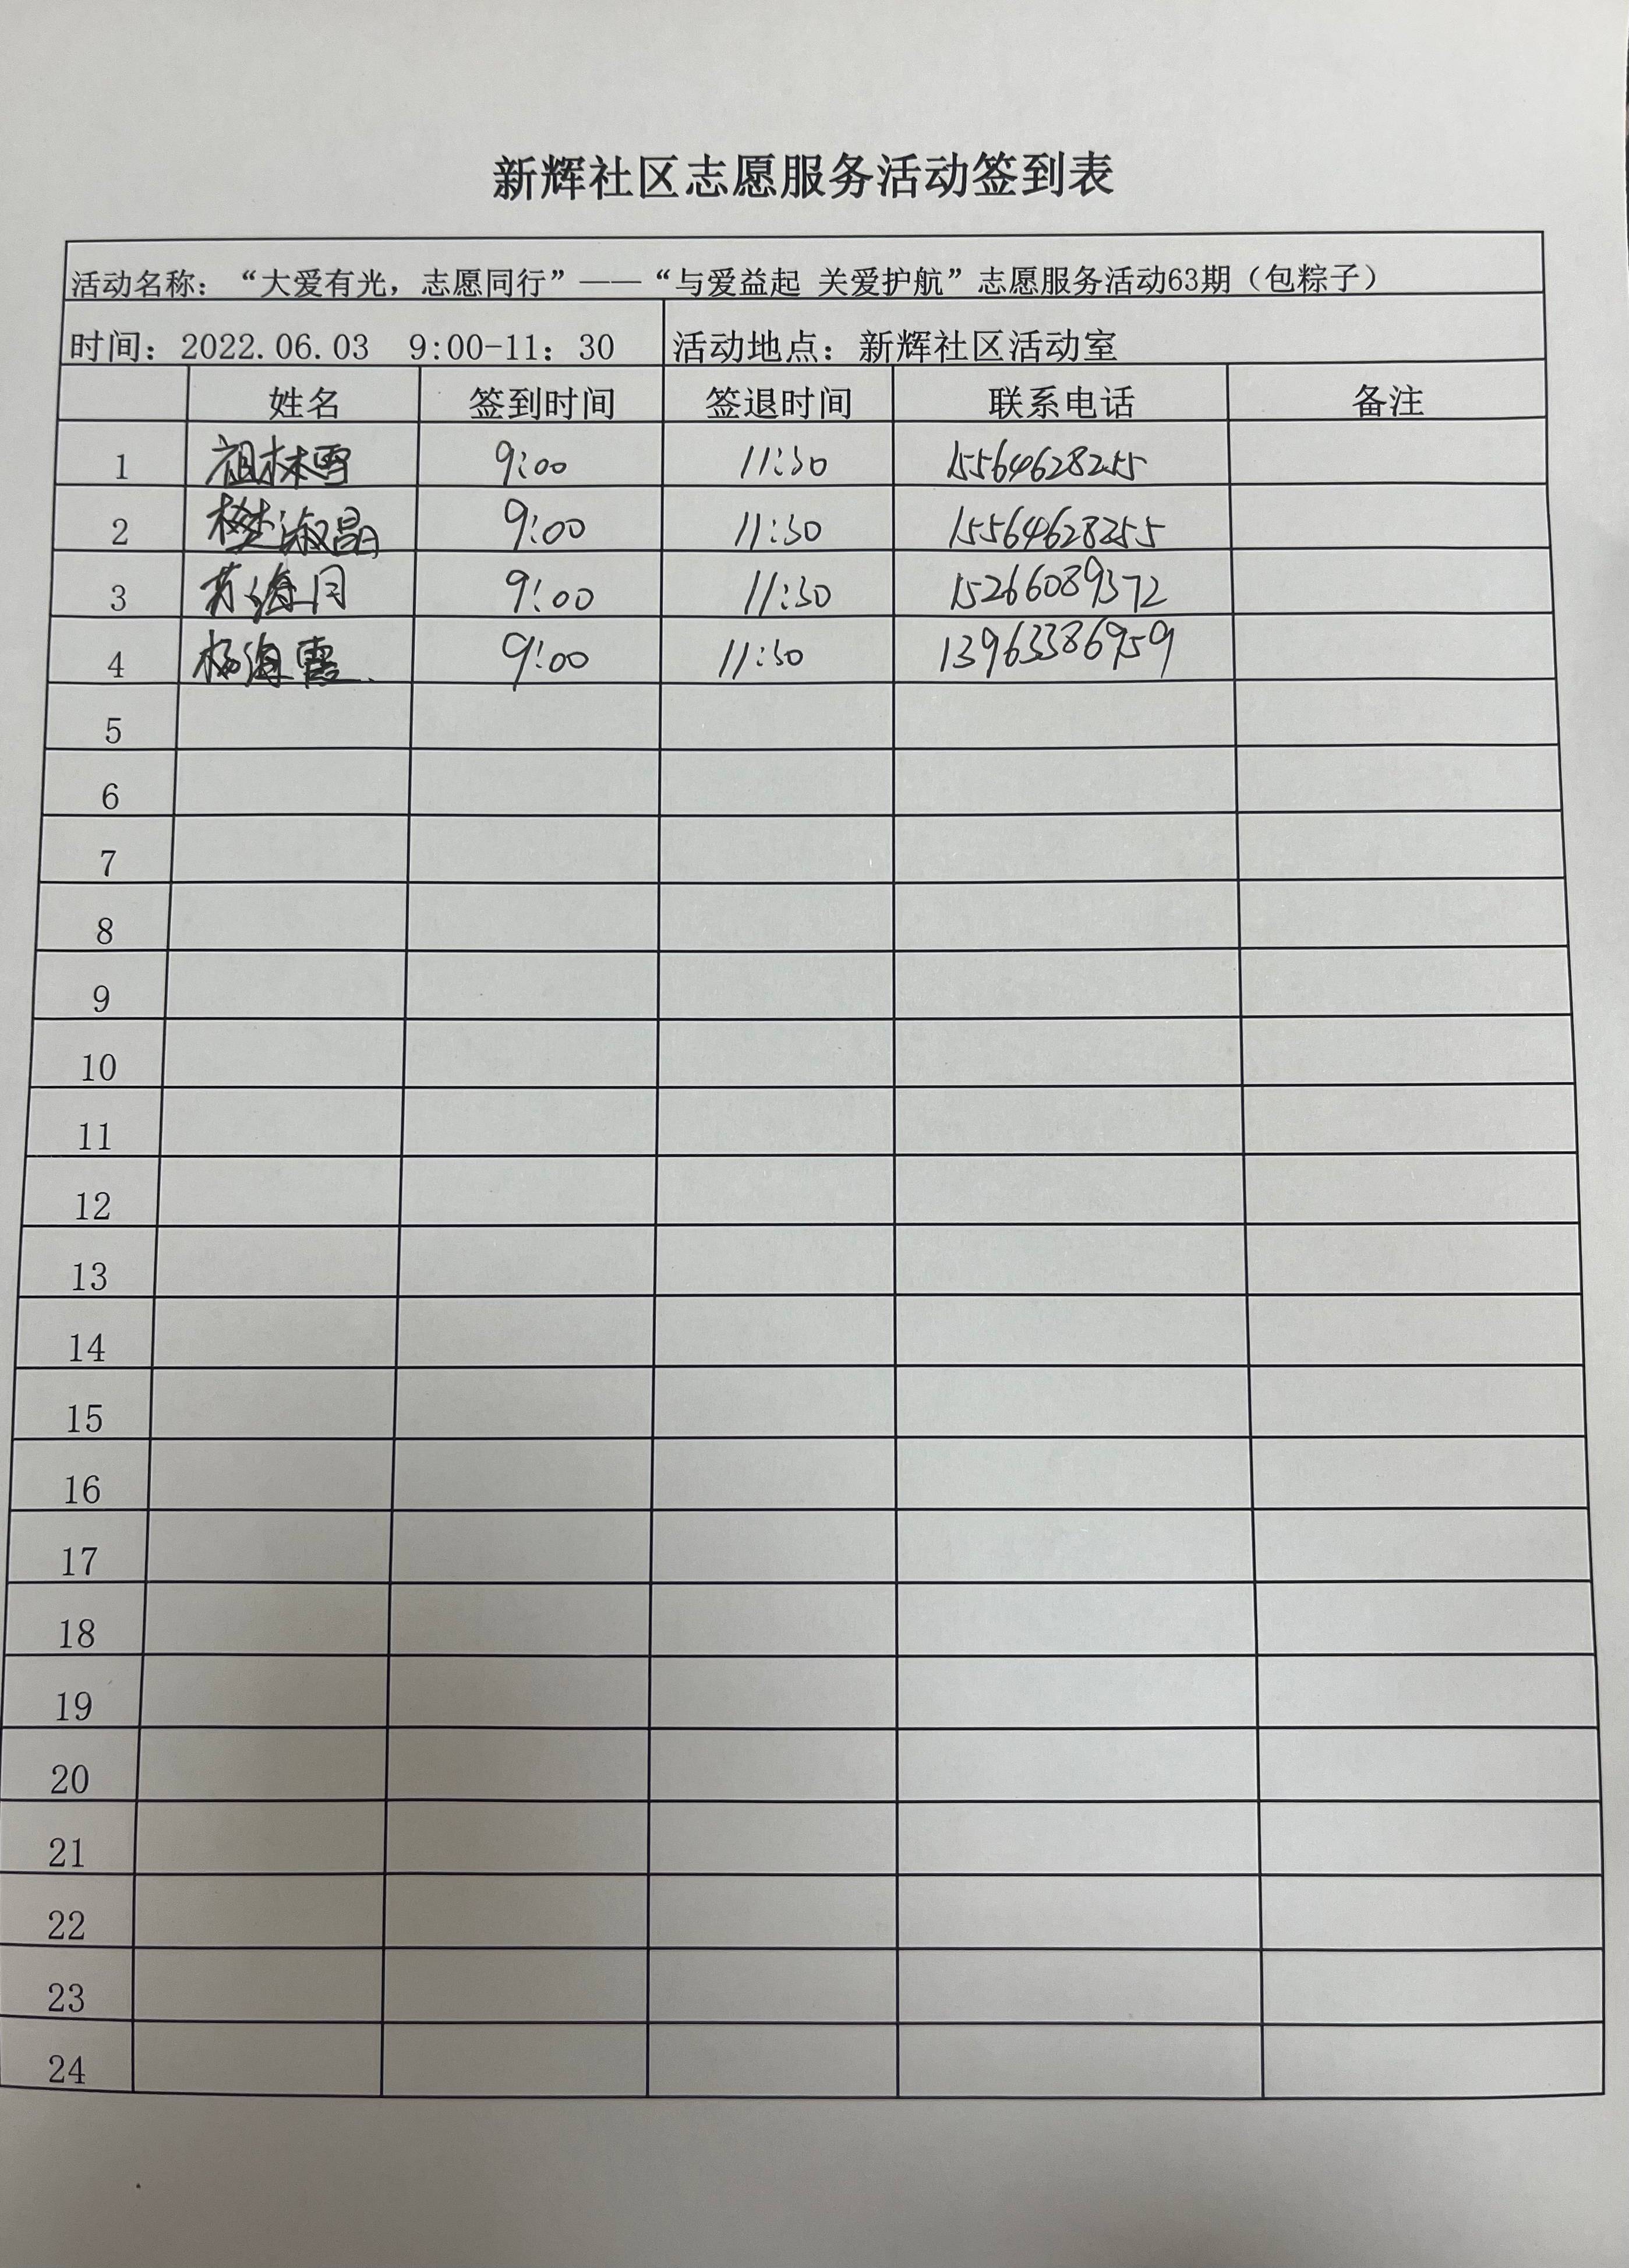 新辉社区志愿服务活动签到表
活动名称：“大爱有光，志愿同行”——“与爱益起 关爱护航”志愿服务活动63期（包粽子）
时间：2022.06.03 9:00-11：30 活动地点：新辉社区活动室
姓名 签到时间 签退时间 联系电话 备注
1 祖林雪 9:00 11:30 15564628255
2 樊淑晶 9:00 11:30 15564628255
3 苏海月 9:00 11:30 15266089372
4 杨海霞 9:00 11:30 13963386959
5
6
7
8
9
10
11
12
13
14
15
16
17
18
19
20
21
22
23
24